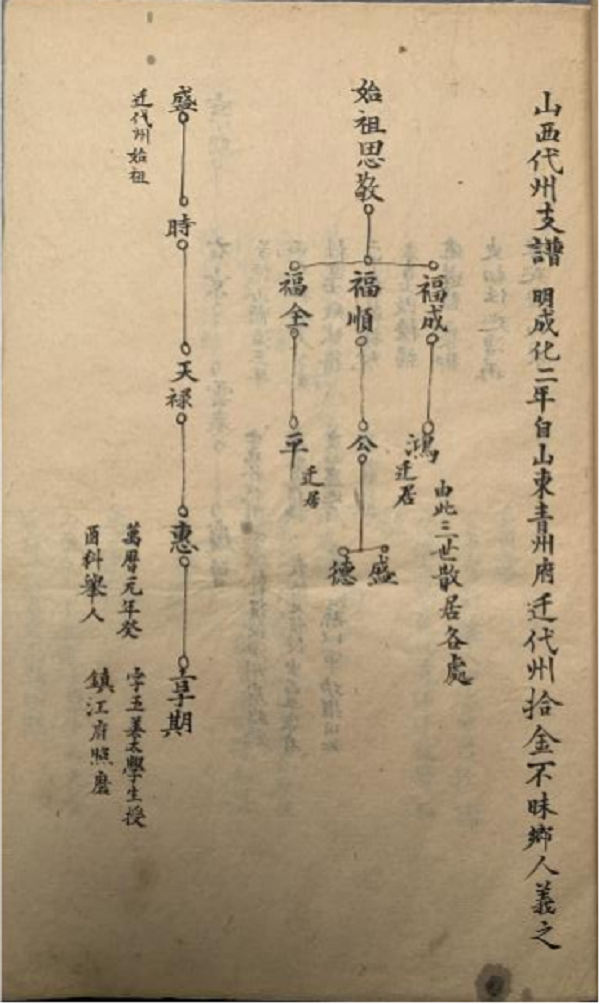 山西代州支譜 明成化二年自山東青州府迁代州拾金不昧鄉人義之
始祖思敬
福成
福順
福全
鴻
迁居
公
平
迁居
由此三世散居各處
盛
德
盛
迁代州始祖
時
天禄
惠
萬曆元年癸
酉科舉人
享期
字玉菉太學生授
鎮江府照磨